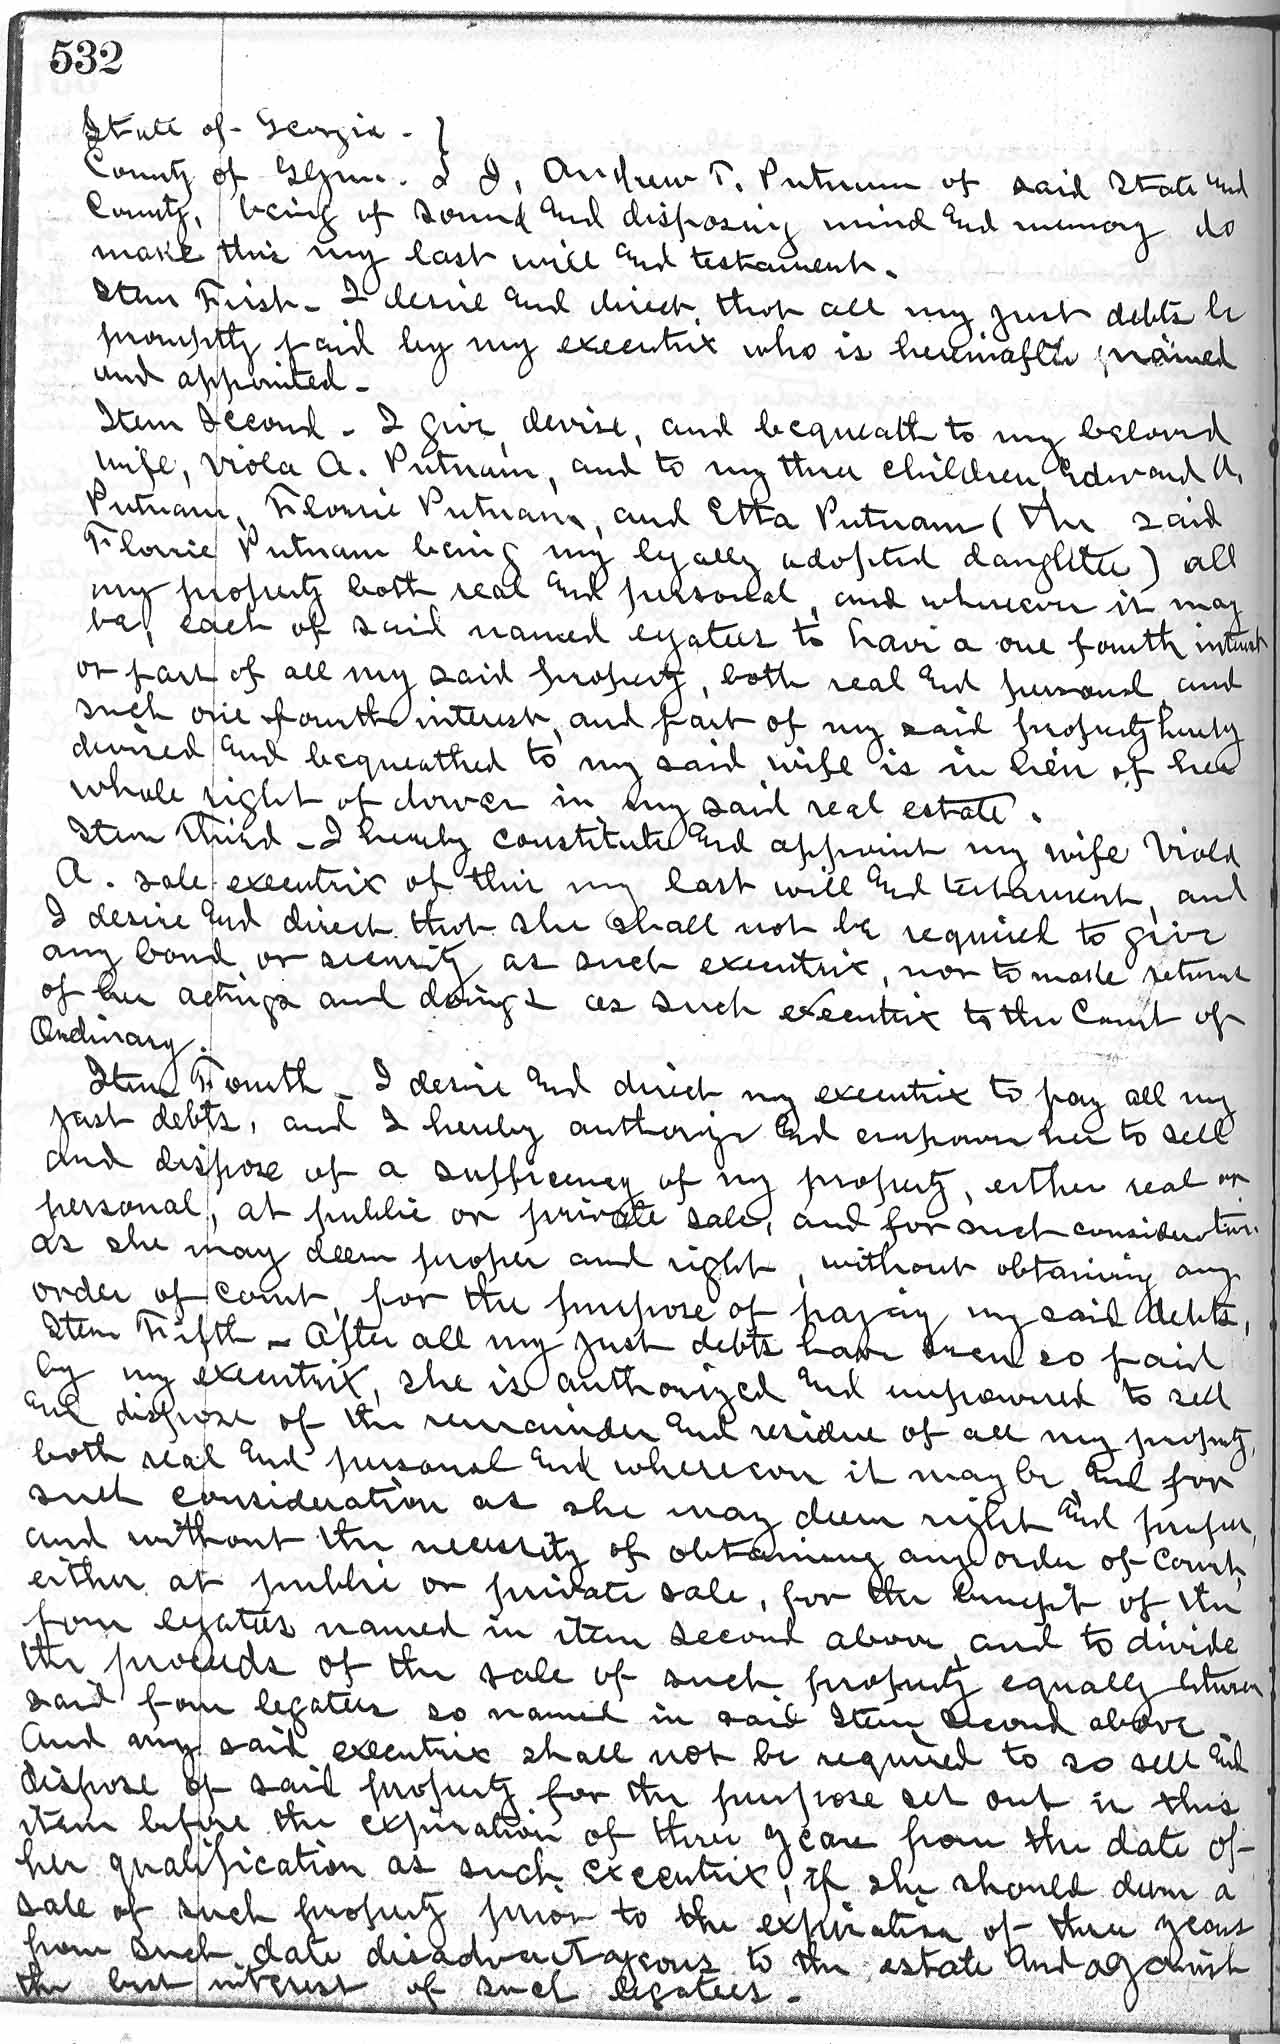 532
State of Georgia. }
County of Glynn. } I, Andrew T. Putnam of said State and
County, being of sound and disposing mind and memory do
make this my last will and testament.
Item First. I desire and direct that all my just debts be
promptly paid by my executrix who is hereinafter named
and appointed.
Item Second. I give, devise, and bequeath to my beloved
wife, Viola A. Putnam, and to my three children, Edward A.
Putnam, Florrie Putnam, and Etta Putnam (the said
Florrie Putnam being my legally adopted daughter) all
my property both real and personal, and wherever it may
be, each of said named legatees to have a one fourth interest
or part of all my said property, both real and personal, and
such one fourth interest, and part of my said property hereby
devised and bequeathed to my said wife is in lieu of her
whole right of dower in my said real estate.
Item Third. I hereby constitute and appoint my wife Viola
A. sole executrix of this my last will and testament, and
I desire and direct that she shall not be required to give
any bond, or security as such executrix, nor to make returns
of her actings and doings as such executrix to the Court of
Ordinary.
Item Fourth. I desire and direct my executrix to pay all my
just debts, and I hereby authorize and empower her to sell
and dispose of a sufficency of my property, either real or
personal, at public or private sale, and for such consideration
as she may deem proper and right, without obtaining any
order of Court, for the purpose of paying my said debts,
Item Fifth. After all my just debts have been so paid
by my executrix, she is authorized and empowered to sell
and dispose of the remainder and residue of all my property,
both real and personal and wherever it may be and for
such consideration as she may deem right and proper,
and without the necessity of obtaining any order of Court,
either at public or private sale, for the benefit of the
four legatees named in item second above, and to divide
the proceeds of the sale of such property equally between
said four legatees so named in said Item Second above.
And my said executrix shall not be required to so sell and
dispose of said property for the purpose set out in this
item before the expiration of three years from the date of
her qualification as such executrix, if she should deem a
sale of such property prior to the expiration of three years
from such date disadvantageous to the estate and against
the best interest of such legatees.